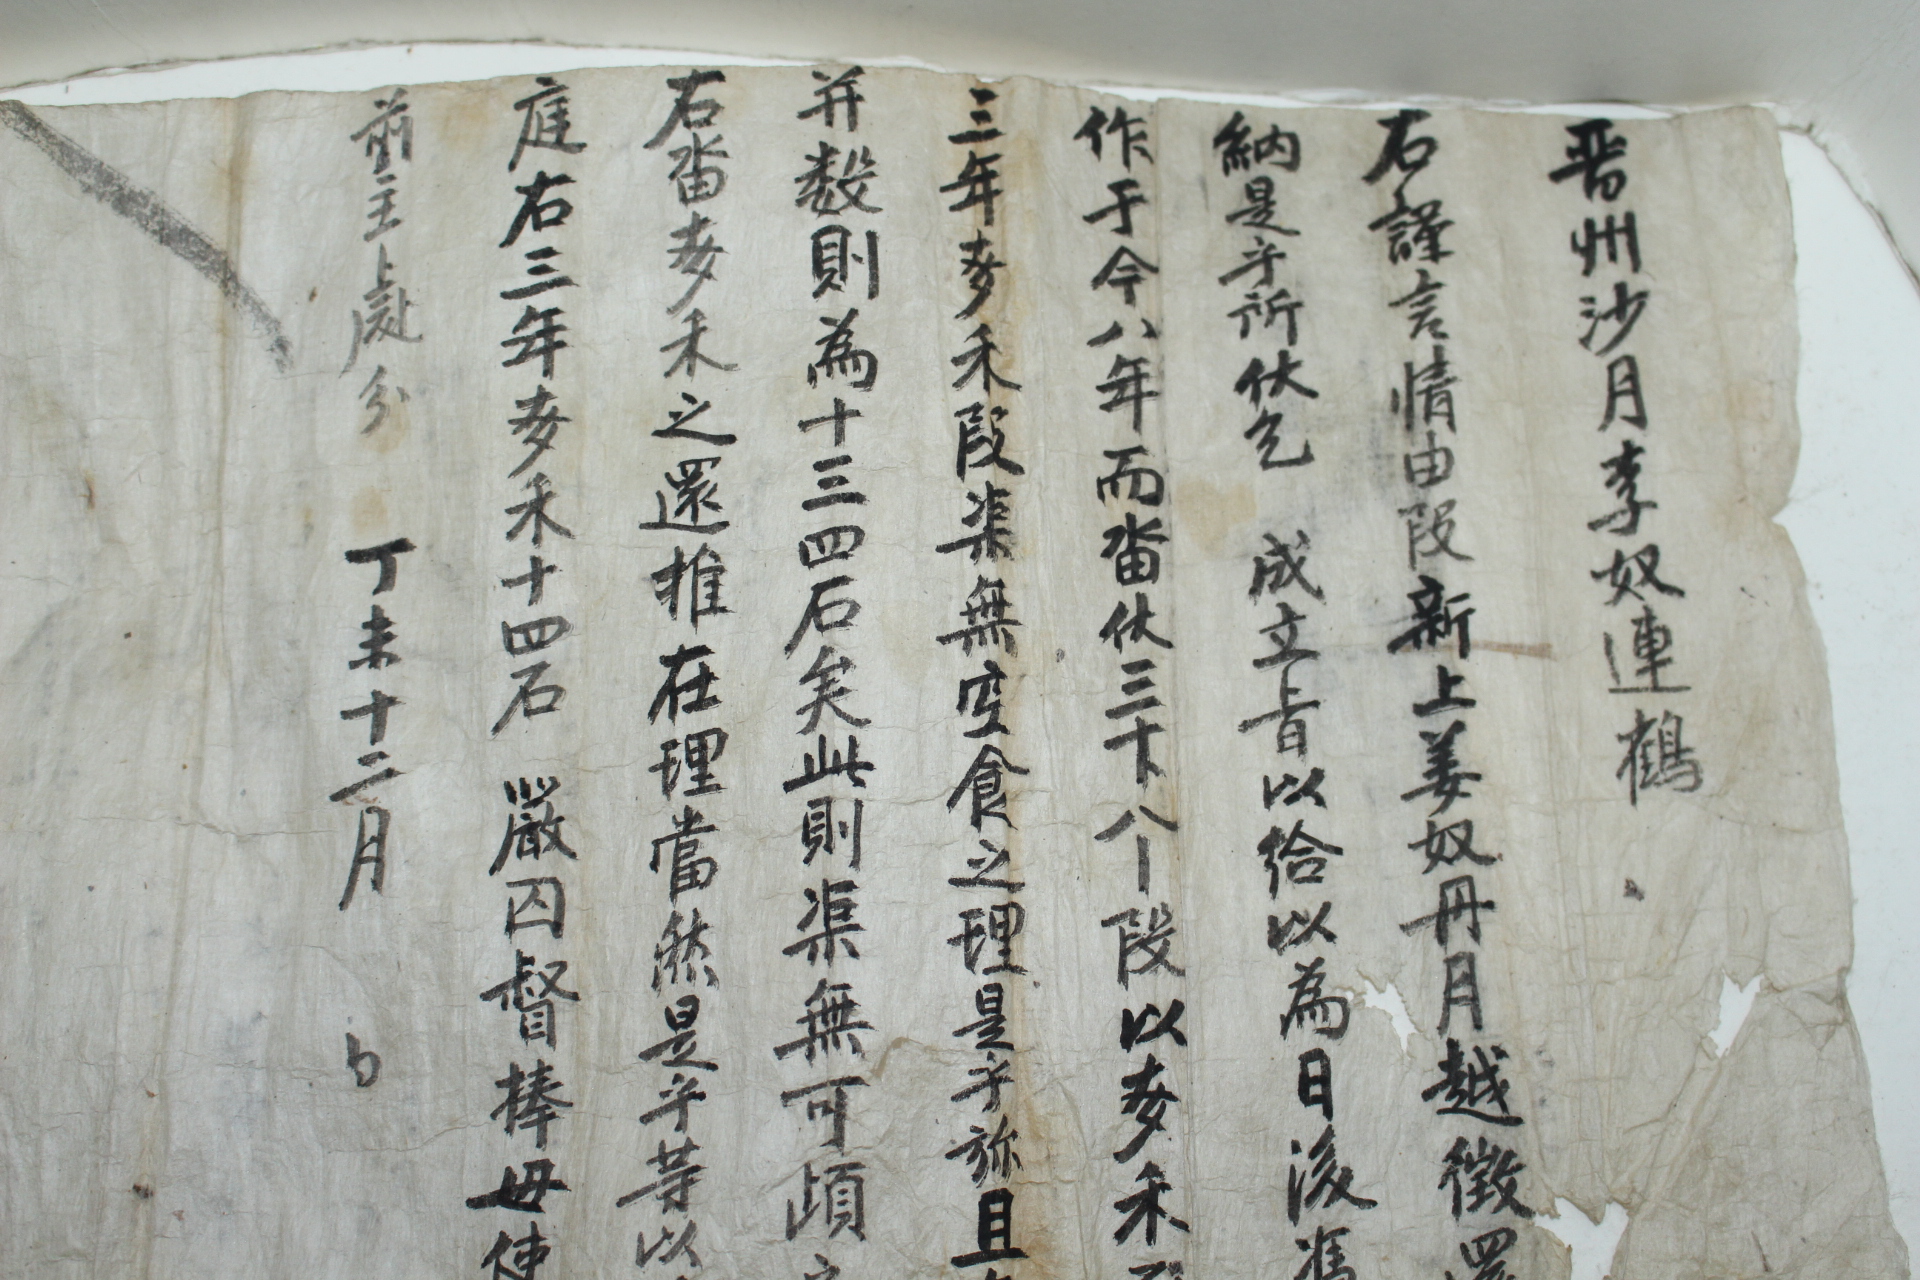 晋州沙月李奴連鶴
右謹言情由段新上姜奴丹月越徵還
納是乎所伏乞 成立旨以給以為日後憑
作于今八年而畓伏三十八卜段以麥禾
三年麥禾段渠無空食之理是乎旀且
并数則為十三四石矣此則渠無可頉
右畓麥禾之還推在理當然是乎等以
庭右三年麥禾十四石 嚴囚督捧毋使
前主上處分 丁未十二月 日